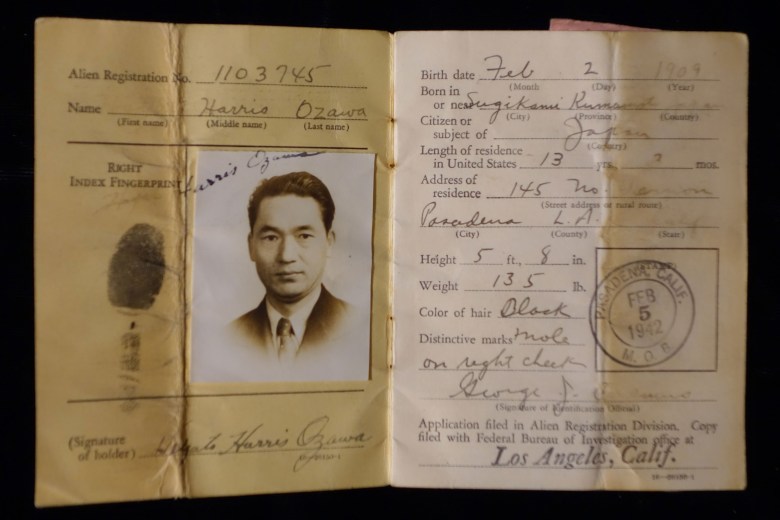 Alien Registration No. 1103745
Name Harris Ozawa
(First name) (Middle name) (Last name)
RIGHT
INDEX FINGERPRINT
Harris Ozawa
(Signature
of holder) Harris Ozawa
Birth date Feb 2 1909
(Month (Day) (Year)
Born in
or near
(City) (Province) (Country)
Citizen or
subject of Japan
(Country)
Length of residence
in United States 13 yrs. mos.
Address of
residence 145 No.
(Street address or rural route)
Pasadena L.A.
(City) (County) (State)
Height 5 ft., 8 in.
Weight 135 lb.
Color of hair Black
Distinctive marks mole
on right cheek
George J.
(Signature of Identification Official)
PASADENA, CALIF.
FEB
5
1942
M. O. B.
Application filed in Alien Registration Division. Copy
filed with Federal Bureau of Investigation office at
Los Angeles, Calif.